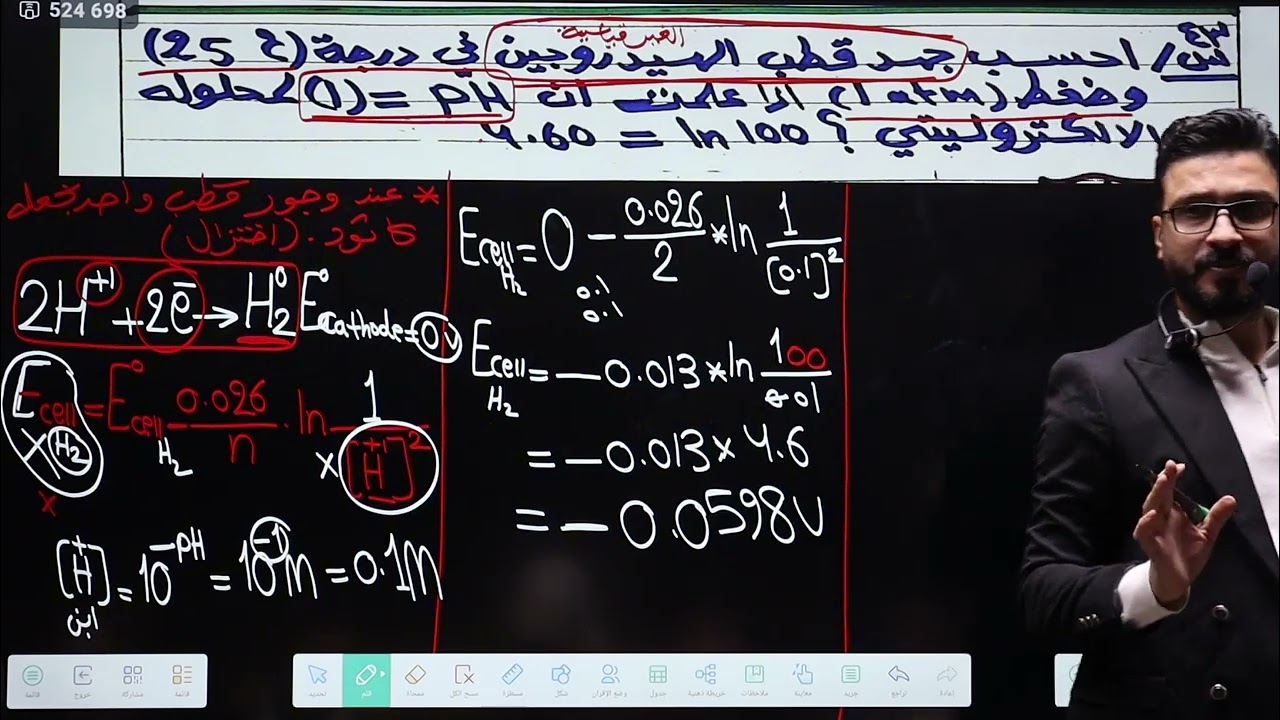 524 698
س٤٣/ احسب جهد قطب الهيدروجين الغير قياسية في درجة (25 ح)
وضغط (1 atm) اذا علمت ان pH = (1) لمحلوله
الالكتروليتي ؟ ln 100 = 4.60
* عند وجود قطب واحد نجعله
كاثود. (اختزال)
2H⁺¹ + 2e⁻ → H₂⁰ E°cathode = 0v
Ecell H₂ = E°cell H₂ - 0.026/n . ln 1/[H⁺]²
[H⁺] = 10^-pH = 10^-1 M = 0.1M
Ecell H₂ = 0 - 0.026/2 * ln 1/[0.1]²
0.1
0.1
Ecell H₂ = - 0.013 * ln 100/
= - 0.013 × 4.6
= - 0.0598 v
قائمة
خروج
مشاركة
قائمة
تحديد
قلم
ممحاة
مسح الكل
مسطرة
شكل
وضع الاقران
جدول
خريطة ذهنية
ملاحظات
معاينة
جديد
تراجع
إعادة